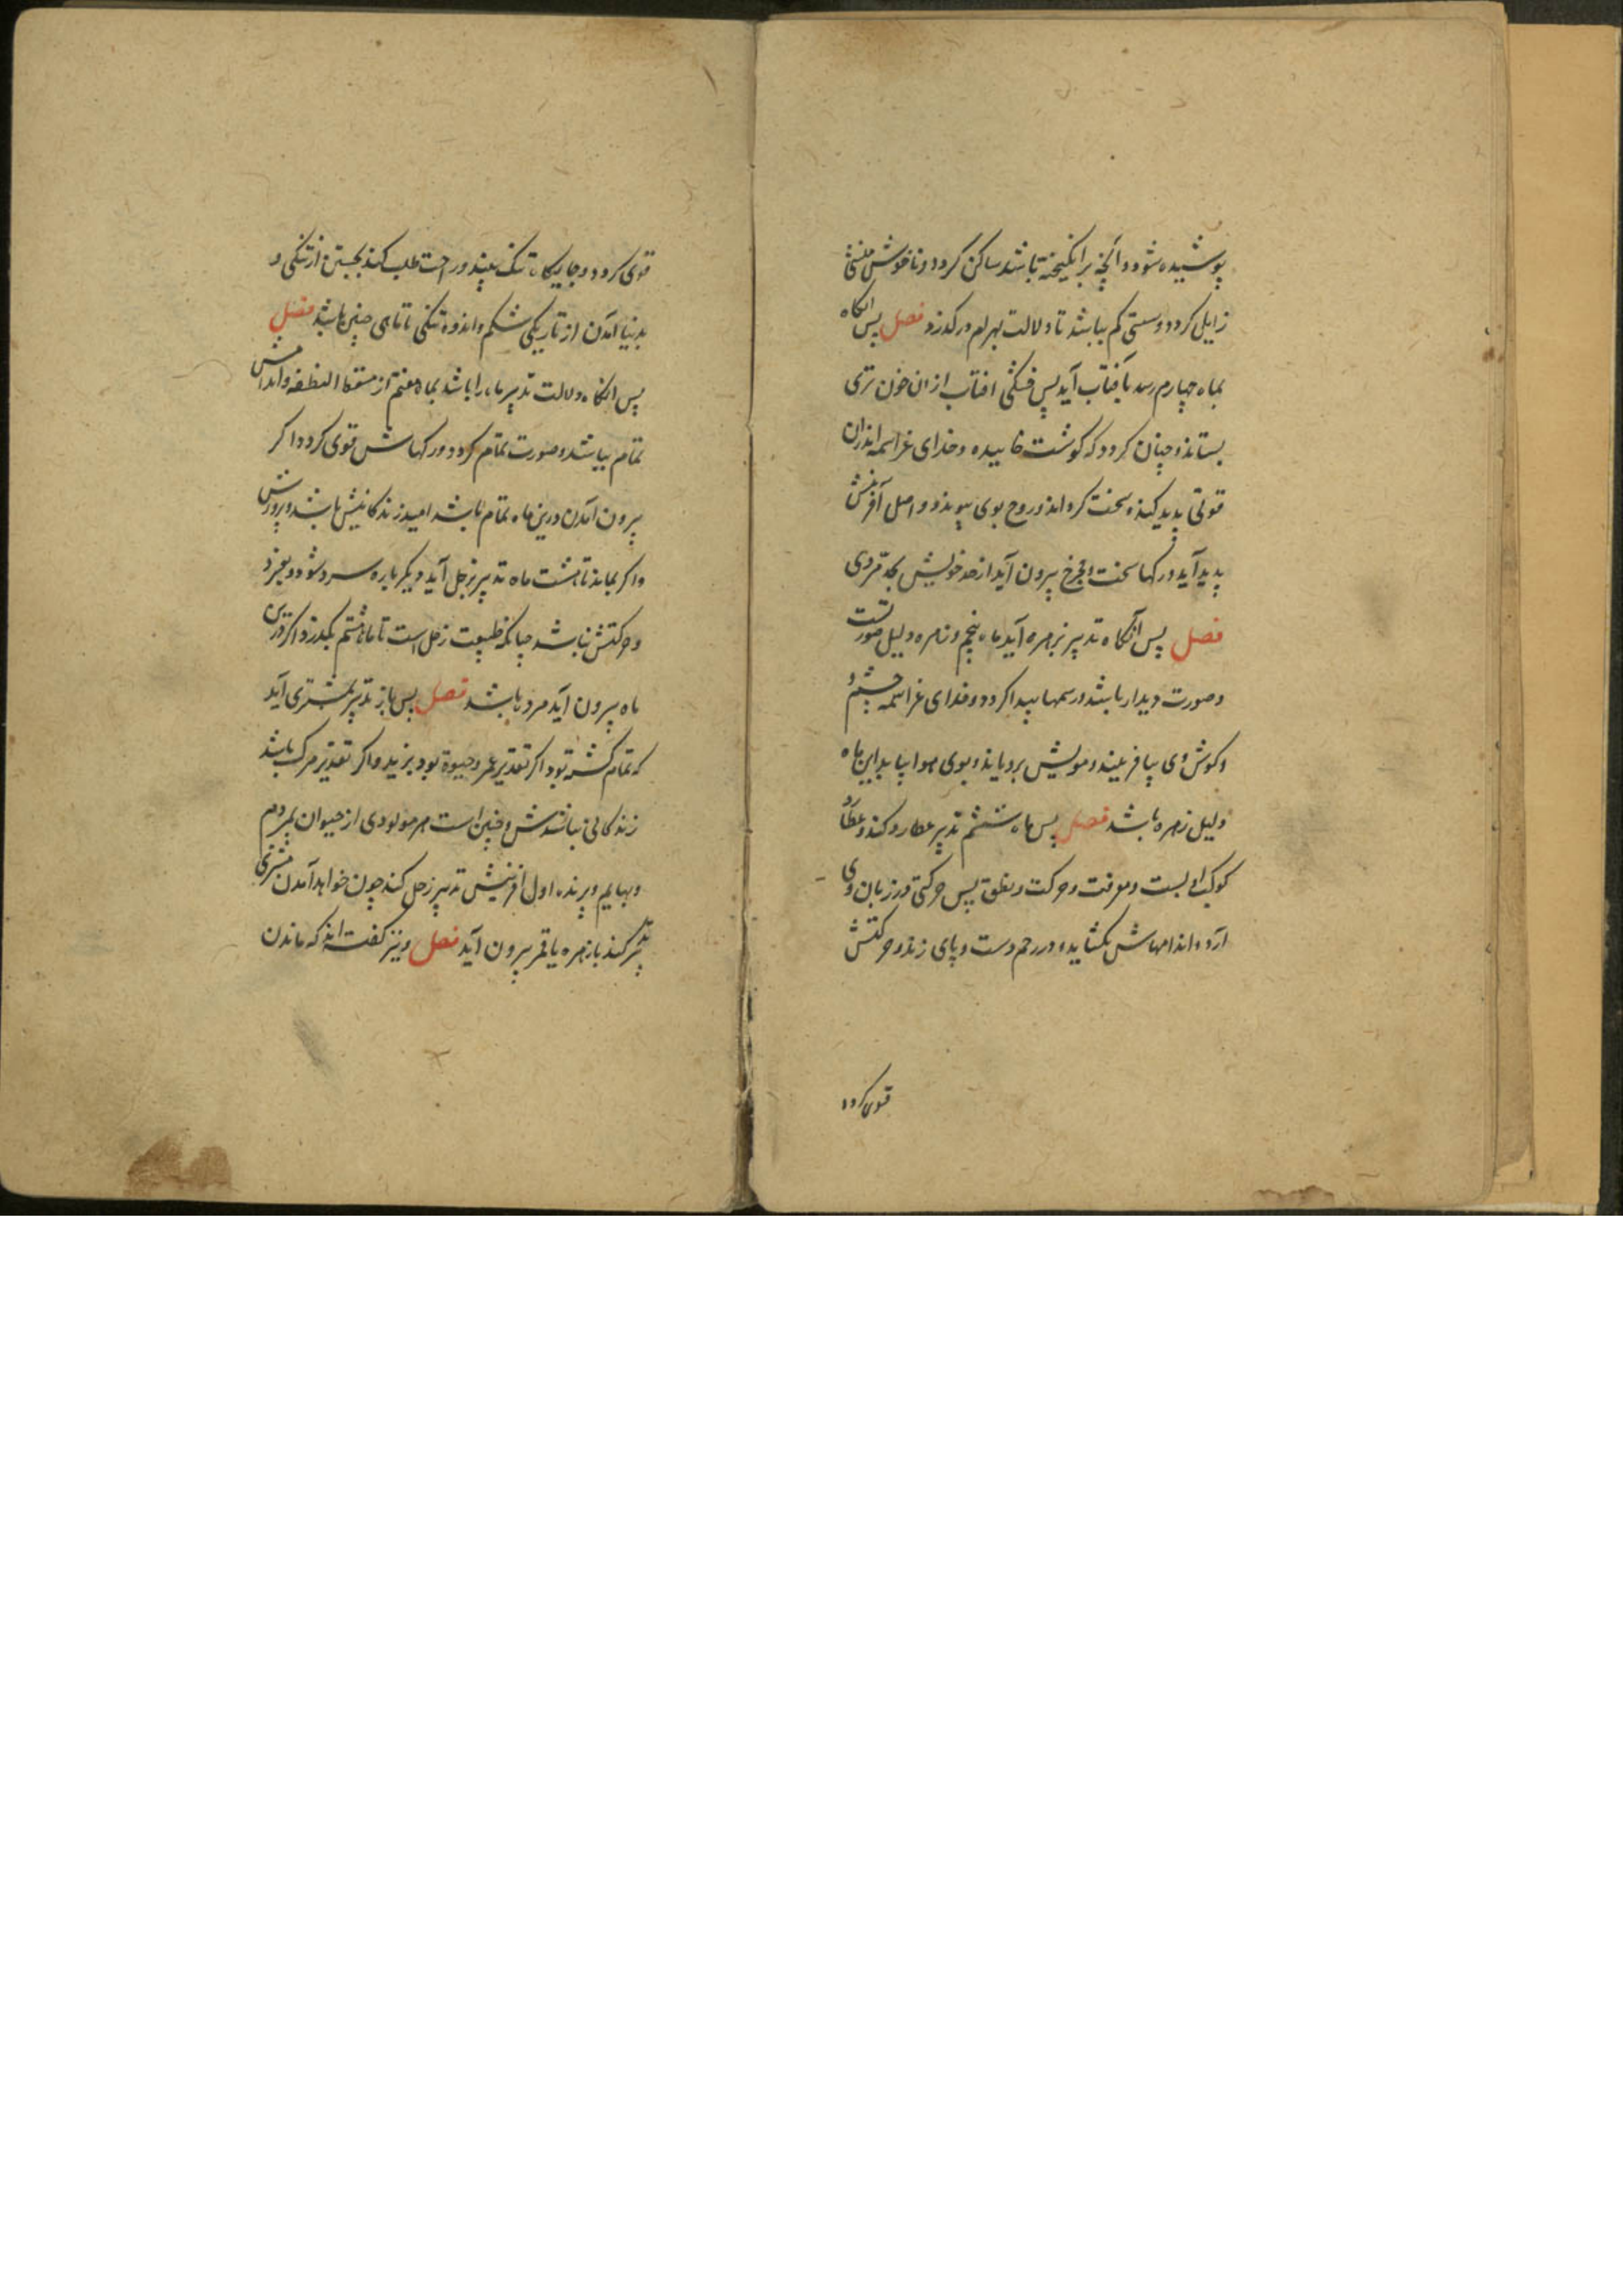 پوشیده شود و آنچه برانگیخته باشد ساکن گردد و ناخوش منشی
زایل گردد و سستی کم بباشد تا دلالت بهرام درگذرد فصل پس انگاه
بماه چهارم رسد بآفتاب آید پس خشکی افتاب از ان خون تری
بستاند و چنان گردد که گوشت خاییده و خدای عز اسمه اندران
قوتی پدید کند و سخت کرداند و روح بوی پیوندد و اصل آفرینش
پدید آید و رکها سخت و چرخ بیرون آید از حد خویش بحد مردی
فصل پس آنگاه تدبیر بزهره آید ماه پنجم و زهره دلیل صورتست
و صورت دیدار باشد و رسمها پیدا کردد و خدای عز اسمه چشم و
و کوش وی بیافریند و مویش برویاند و بوی هوا بیابد این ماه
دلیل زهره باشد فصل پس ماه ششم تدبیر عطارد کند و عطارد
کوکب ادبست و معرفت و حرکت و نطق پس حرکتی در زبان وی
آرد و اندامهاش بکشاید و در رحم دست و پای زند و حرکتش
قوی کردد
قوی کردد و جایگاه تنک بیند و راحت طلب کند بجستن از تنکی و
بدنیا آمدن از تاریکی شکم و اندوه تنکی تا تناهی چنین باشد فصل
پس انگاه دلالت تدبیر ماه را باشد بماه هفتم از مسقط النطفه و اندامش
تمام بباشد و صورت تمام کردد و رکهاش قوی کردد اکر
بیرون آمدن درین ماه تمام باشد امید زندکانیش باشد و پرورش
و اکر بماند تا هشت ماه تدبیر بزحل آید دیکر باره سرد شود و بفسرد
و حرکتش نباشد چنانکه طبیعت زحل است تا ماه هشتم بگذرد و اکر درین
ماه بیرون آید مرده باشد فصل پس باز تدبیر بمشتری آید
که تمام کشته بود اکر تقدیر عمر و حیوة بود بزید و اکر تقدیر مرک باشد
زندکانی نباشدش و چنین است هر مولودی از حیوان بمردم
و بهایم و پرنده اول افرینش تدبیر زحل کند چون خواهد آمدن مشتری
تدبیر کند با زهره یا قمر بیرون آید فصل و نیز کفته اند که ماندن